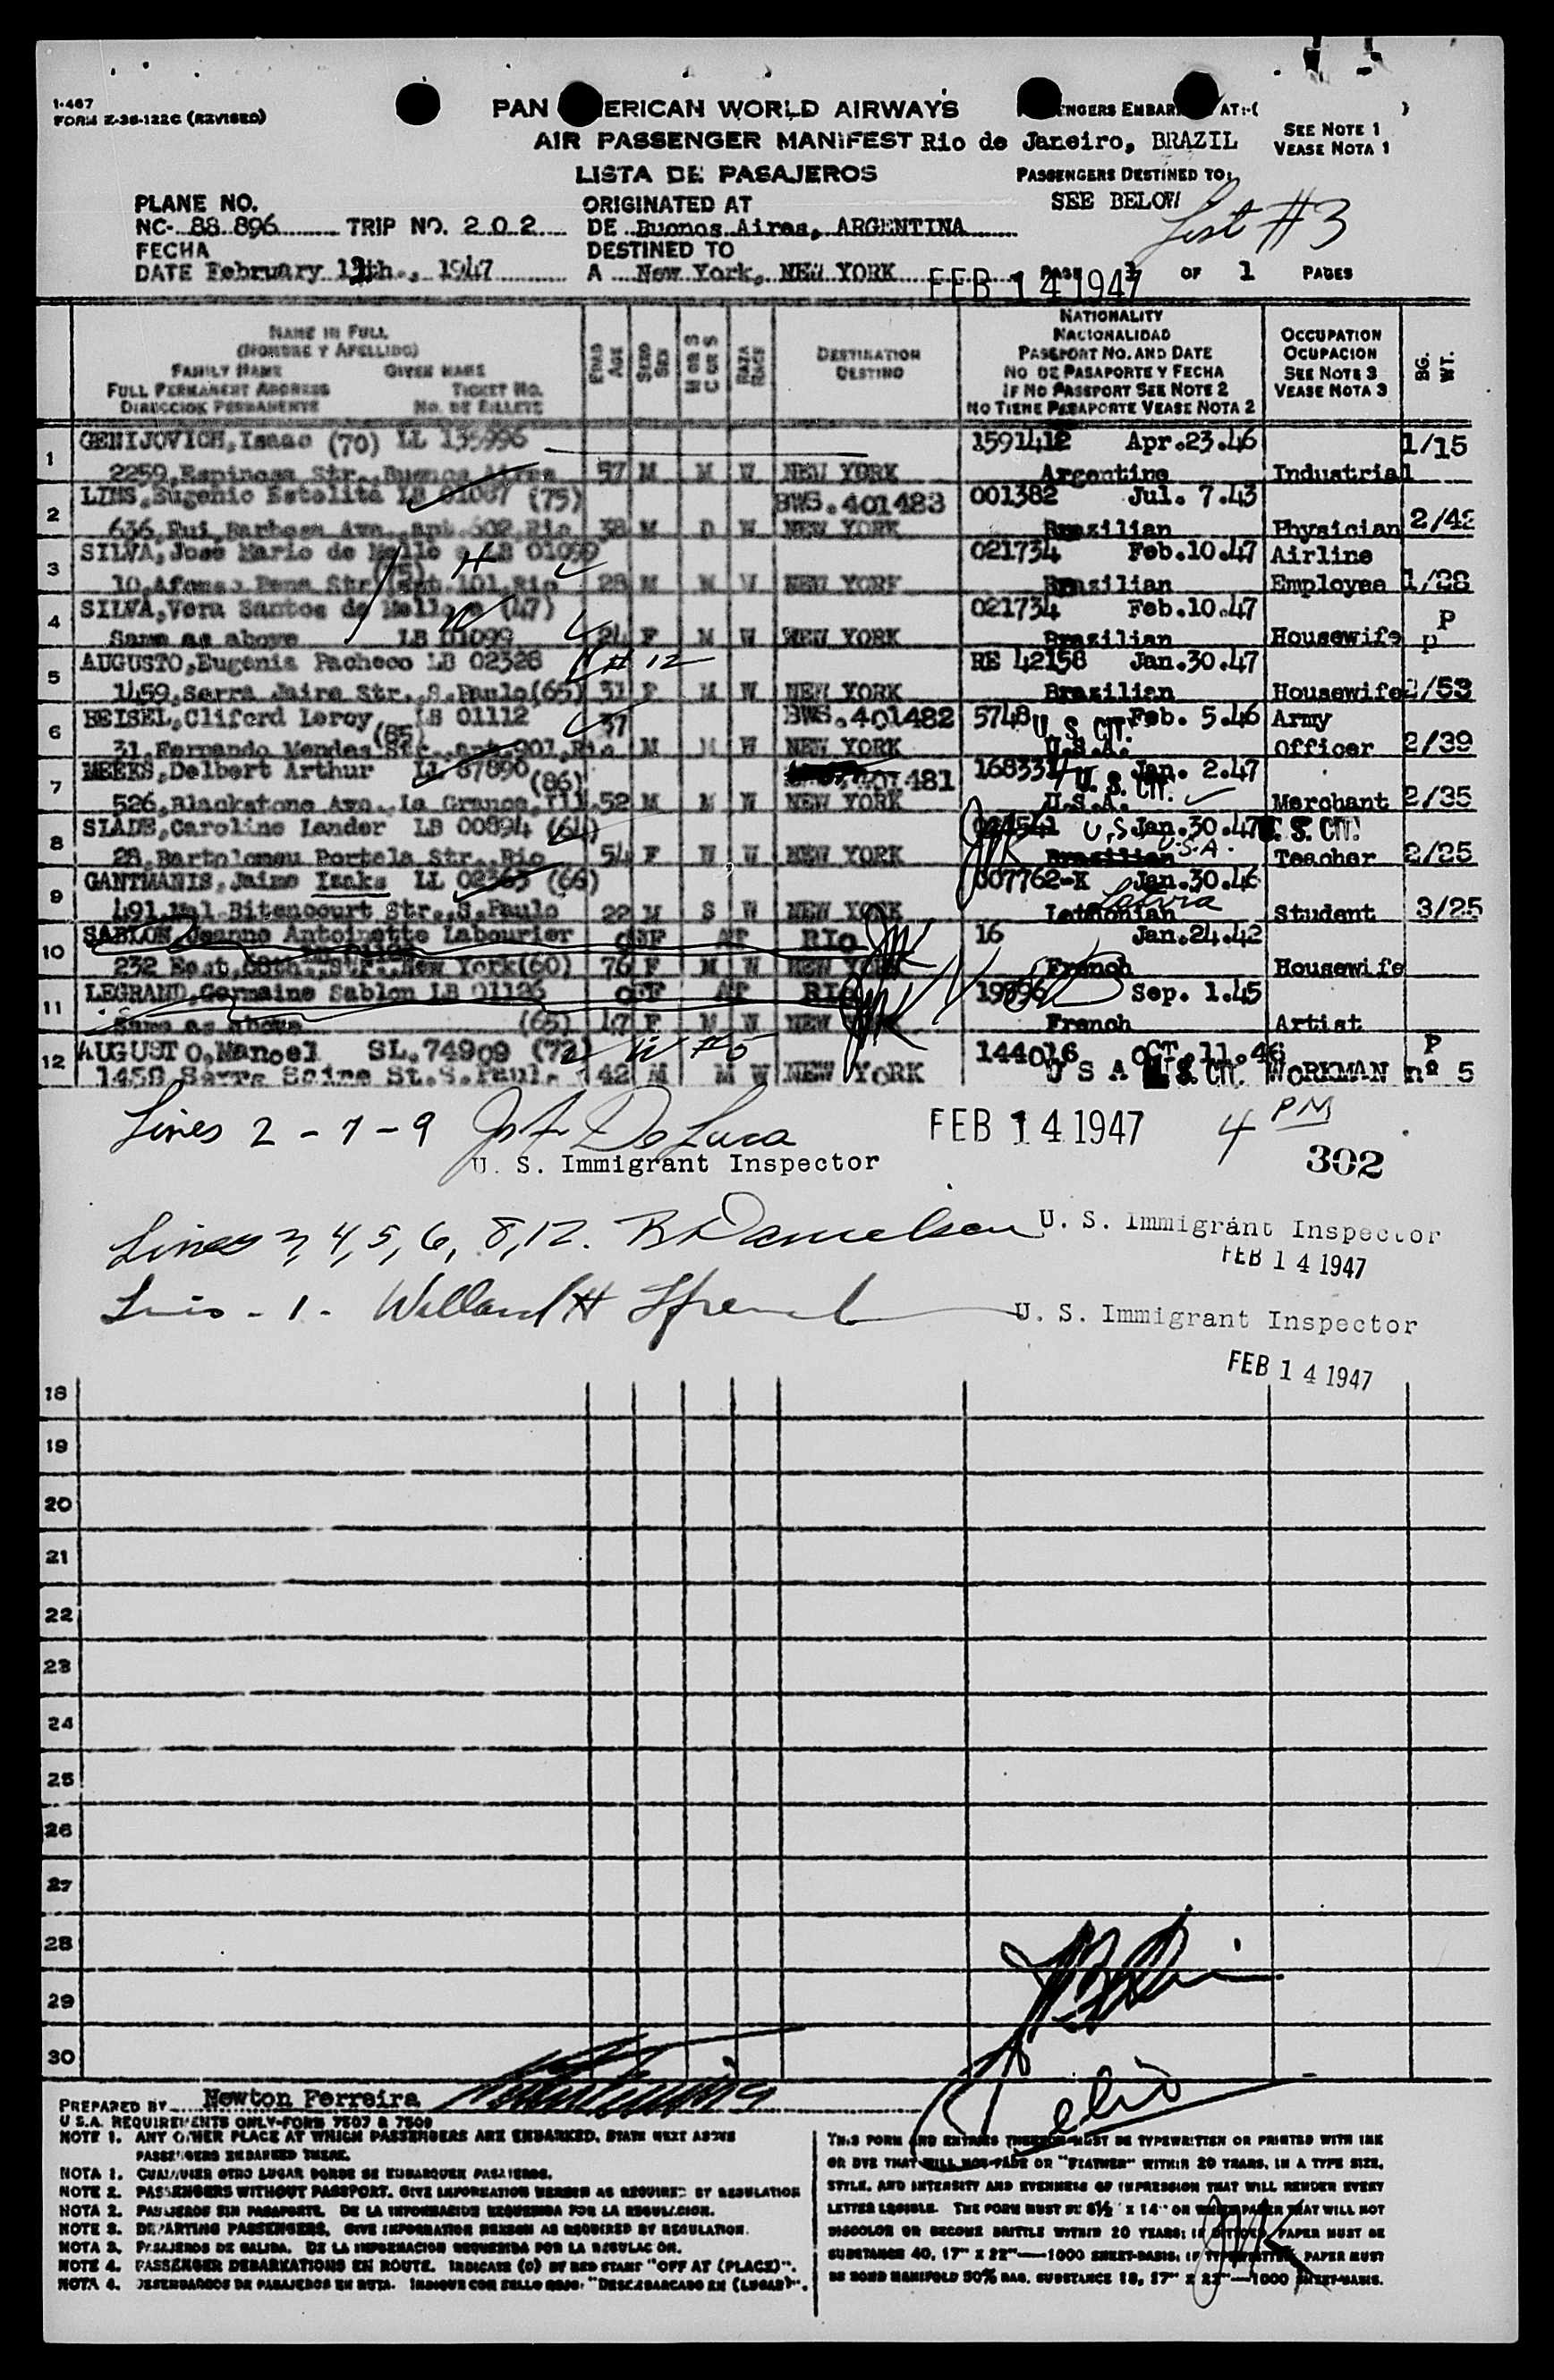 I-467
FORM Z-38-122C (REVISED)
PAN ERICAN WORLD AIRWAYS
AIR PASSENGER MANIFEST
LISTA DE PASAJEROS
ENGERS EMBAR AT:-( )
Rio de Janeiro, BRAZIL
SEE NOTE 1
VEASE NOTA 1
PASSENGERS DESTINED TO:
SEE BELOW
List #3
PLANE NO.
NC- 88 896 TRIP NO. 2 0 2
ORIGINATED AT
DE Buenos Aires, ARGENTINA
FECHA
DATE February 13th., 1947
DESTINED TO
A New York, NEW YORK
FEB 14 1947
PAGE 1 OF 1 PAGES
NAME IN FULL
(NOMBRE Y APELLIDO)
FAMILY NAME GIVEN NAME
FULL PERMANENT ADDRESS TICKET NO.
DIRECCION PERMANENTE NO. DE BILLETE
EDAD AGE
SEXO SEX
M OR S
C OR S
RAZA RACE
DESTINATION
DESTINO
NATIONALITY
NACIONALIDAD
PASSPORT NO. AND DATE
NO DE PASAPORTE Y FECHA
IF NO PASSPORT SEE NOTE 2
NO TIENE PASAPORTE VEASE NOTA 2
OCCUPATION
OCUPACION
SEE NOTE 3
VEASE NOTA 3
BG. WT.
1 GENIJOVICH, Isaac (70) LL 135996 1591412 Apr.23.46 1/15
2259, Espinosa Str., Buenos Aires 57 M M W NEW YORK Argentine Industrial
2 LINS, Eugenio Estelita LB 01087 (75) BWS.401483 001382 Jul. 7.43
636, Rui Barbosa Ave., apt. 602, Rio 38 M D W NEW YORK Brazilian Physician 2/42
3 SILVA, Jose Mario de Mello e LB 01099 021734 Feb.10.47 Airline
10, Afonso Pena Str. apt. 101, Rio (75) 28 M M W NEW YORK Brazilian Employee 1/28
4 SILVA, Vera Santos de Mello e (47) 021734 Feb.10.47 P
Same as above LB 01099 24 F M W NEW YORK Brazilian Housewife P
5 AUGUSTO, Eugenia Pacheco LB 02328 W #12 RE 42158 Jan.30.47
1459, Serra Jaire Str., S. Paulo (65) 31 F M W NEW YORK Brazilian Housewife 2/53
6 BEISEL, Cliferd Leroy (85) LB 01112 37 BWS.401482 5748 U. S. CIT. Feb. 5.46 Army
31, Fernando Mendes Str., apt. 901, Rio M M W NEW YORK U.S.A. Officer 2/39
7 MEEKS, Delbert Arthur LL 87890 (86) 401481 168334 U. S. CIT. Jan. 2.47
526, Blackstone Ave., La Grange, Ill. 52 M M W NEW YORK U.S.A. Merchant 2/35
8 SLADE, Caroline Lander LB 00894 (64) 024541 U.S. Jan.30.47 U. S. CIT.
28, Bartolomeu Portela Str., Rio 54 F W W NEW YORK Brazilian U.S.A. Teacher 2/25
9 GANTMANIS, Jaime Izaks LL 02363 (66) 007762-X Jan.30.46
491, Mal. Bitencourt Str., S. Paulo 22 M S W NEW YORK Lethonian Latvia Student 3/25
10 SABLON, Jeanne Antoinette Labourier OFF AT RIO 16 Jan.24.42
232 East, Str., New York (60) 76 F M W NEW YORK French Housewife
11 LEGRAND, Germaine Sablon LB 01126 OFF AT RIO Sep. 1.45
Same as above (65) 47 F M W NEW YORK French Artist
12 AUGUSTO, Manoel SL.74909 (72) W #5 144016 OCT.11.46 P
1459 Serra St. S. Paulo 42 M M W NEW YORK U S A U. S. CIT. WORKMAN nº 5
Lines 2 - 7 - 9 De Luca FEB 14 1947 4 PM
U. S. Immigrant Inspector
302
Lines 3, 4, 5, 6, 8, 12. B Danielsen U. S. Immigrant Inspector
FEB 14 1947
Line - 1 - Willard H U. S. Immigrant Inspector
FEB 14 1947
18
19
20
21
22
23
24
25
26
27
28
29
30
PREPARED BY Newton Ferreira
U S.A. REQUIREMENTS ONLY-FORM 7507 & 7509
NOTE 1. ANY OTHER PLACE AT WHICH PASSENGERS ARE EMBARKED, STATE NEXT ABOVE
PASSENGERS EMBARKED THERE.
NOTA 1. CUALQUIER OTRO LUGAR DONDE SE EMBARQUEN PASAJEROS.
NOTE 2. PASSENGERS WITHOUT PASSPORT. GIVE INFORMATION HEREON AS REQUIRED BY REGULATION
NOTA 2. PASAJEROS SIN PASAPORTE. DE LA INFORMACION REQUERIDA POR LA REGULACION.
NOTE 3. DEPARTING PASSENGERS. GIVE INFORMATION HEREON AS REQUIRED BY REGULATION.
NOTA 3. PASAJEROS DE SALIDA. DE LA INFORMACION REQUERIDA POR LA REGULACION.
NOTE 4. PASSENGER DEBARKATIONS EN ROUTE. INDICATE (D) BY RED STAMP "OFF AT (PLACE)".
NOTA 4. DESEMBARCOS DE PASAJEROS EN RUTA. INDIQUE CON SELLO ROJO: "DESEMBARCADO EN (LUGAR)".
THIS FORM AND ENTRIES THEREON MUST BE TYPEWRITTEN OR PRINTED WITH INK
OR DYE THAT WILL NOT FADE OR "FEATHER" WITHIN 20 YEARS, IN A TYPE SIZE,
STYLE, AND INTENSITY AND EVENNESS OF IMPRESSION THAT WILL RENDER EVERY
LETTER LEGIBLE. THE FORM MUST BE 8½" X 14" ON WHITE PAPER THAT WILL NOT
DISCOLOR OR BECOME BRITTLE WITHIN 20 YEARS; IF DITTOED, PAPER MUST BE
SUBSTANCE 40, 17" X 22"—1000 SHEET-BASIS; IF TYPEWRITTEN, PAPER MUST
BE BOND MANIFOLD 50% RAG, SUBSTANCE 18, 17" X 22"—1000 SHEET-BASIS.